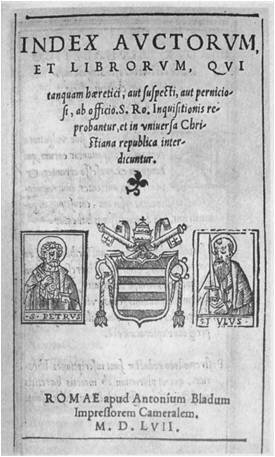 INDEX AVCTORVM,
ET LIBRORVM, QVI
tanquam hæretici, aut suspecti, aut pernicio-
si, ab officio. S. Ro. Inquisitionis re-
probantur, et in vniuersa Chri-
stiana republica inter-
dicuntur.
S. PETRVS
ROMAE apud Antonium Bladum
Impressorem Cameralem.
M. D. LVII.